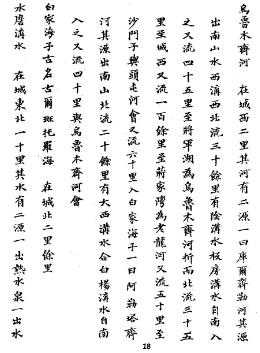 烏魯木齊河　在城西二里其河有二源一曰庫爾齊勒河其源
出南山水西溝西北流三十餘里有陰溝水板房溝水自南入
之又流四十五里至將軍湖為烏魯木齊河折而北流三十五
里至城西又流一百餘里至蔣家灣為老龍河又流五十里至
沙門子與頭屯河會又流六十里入白家海子一曰阿勒塔齊
河其源出南山北流二十餘里有大西溝水合白楊溝水自南
入之又流四十里與烏魯木齊河會
白家海子古名古爾班托羅海　在城北二里餘里
水磨溝水　在城東北一十里其水有二源一出熱水泉一出水
18